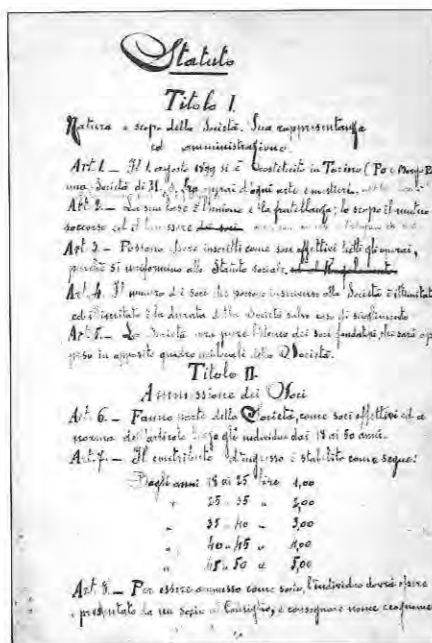 Statuto
Titolo I.
Natura e scopo della Società. Sua rappresentanza
ed amministrazione.
Art. 1. — Il 1. agosto 1899 si è costituito in Torino (Po e Borgo Po
una Società di M. S. fra operai d'ogni arte e mestiere.
Art. 2. — La sua base è l'unione e la fratellanza; lo scopo il mutuo
soccorso ed il benessere dei soci
Art. 3. — Possono essere inscritti come soci effettivi tutti gli operai,
perchè si uniformino allo Statuto sociale. ed al Regolamento
Art. 4. Il numero dei soci che possono inscriversi alla Società è illimitato
ed illimitata è la durata della Società salvo caso di scioglimento
Art. 5. — La Società avrà pure l'elenco dei soci fondatori, che sarà ap
peso in apposito quadro nei locali della Società.
Titolo II.
Ammissione dei Soci
Art. 6. — Fanno parte della Società, come soci effettivi ed a
norma dell'articolo gli individui dai 18 ai 50 anni.
Art. 7. — Il contributo d'ingresso è stabilito come segue:
Dagli anni 18 ai 25 lire 1,00
" 25 " 35 " 2,00
" 35 " 40 " 3,00
" 40 " 45 " 4,00
" 45 " 50 " 5,00
Art. 8. — Per essere ammesso come socio, l'individuo dovrà essere
presentato da un socio al Consiglio, e consegnare nome cognome